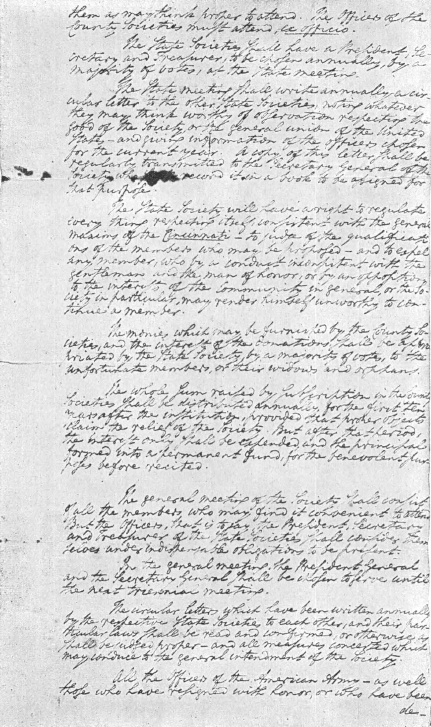 them as may think proper to attend. The Officers of the
County Societies must attend, ex officio.
The State Societies shall have a President, Se-
cretary and Treasurer, to be chosen annually, by a
majority of votes, at the State meeting.
The State meeting shall write annually a cir-
cular letter to the other State Societies, noting whatever
they may think worthy of observation respecting the
good of the Society, or the general union of the United
States and giving information of the officers chosen
for the current year. A copy of this letter shall be
regularly transmitted to the Secretary General of the
Society who record it in a book to be assigned for
that purpose.
The State Society will have a right to regulate
every thing respecting itself, consistent with the general
maxims of the Cincinnati — to judge of the qualificati-
ons of the members who may be proposed — and to expel
any member, who by a conduct inconsistent with the
gentleman and the man of honor, or by an opposition
to the interest of the Community in general, or the So-
ciety in particular, may render himself unworthy to con-
tinue a member.
The monies, which may be furnished by the County So-
cieties, and the interest of the donations, shall be appro-
priated by the State Society, by a majority of votes, to the
unfortunate members, or their widows and orphans.
The whole sum raised by subscription in the County
Societies shall be distributed annually, for the first ten
years after the institution, provided that proper objects
claim the relief of the Society. But after the period,
the interest only shall be expended and the principal
formed into a permanent fund, for the benevolent pur-
poses before recited.
The general meeting of the Society shall consist
of all the members, who may find it convenient to attend
But the Officers, that is to say, the President, Secretary
and Treasurer of the State Societies shall consider them-
selves under indispensible obligations to be present.
In the general meeting, the President General
and the Secretary General, shall be chosen to serve until
the next triennial meeting.
The circular letters which have been written annually
by the respective State Societies to each other, and their par-
ticular laws shall be read and confirmed, or otherwise, as
shall be judged proper — and all measures concerted which
may conduce to the general intendment of the Society.
All the Officers of the American Army — as well
those who have resigned with honor, or who have been
de-